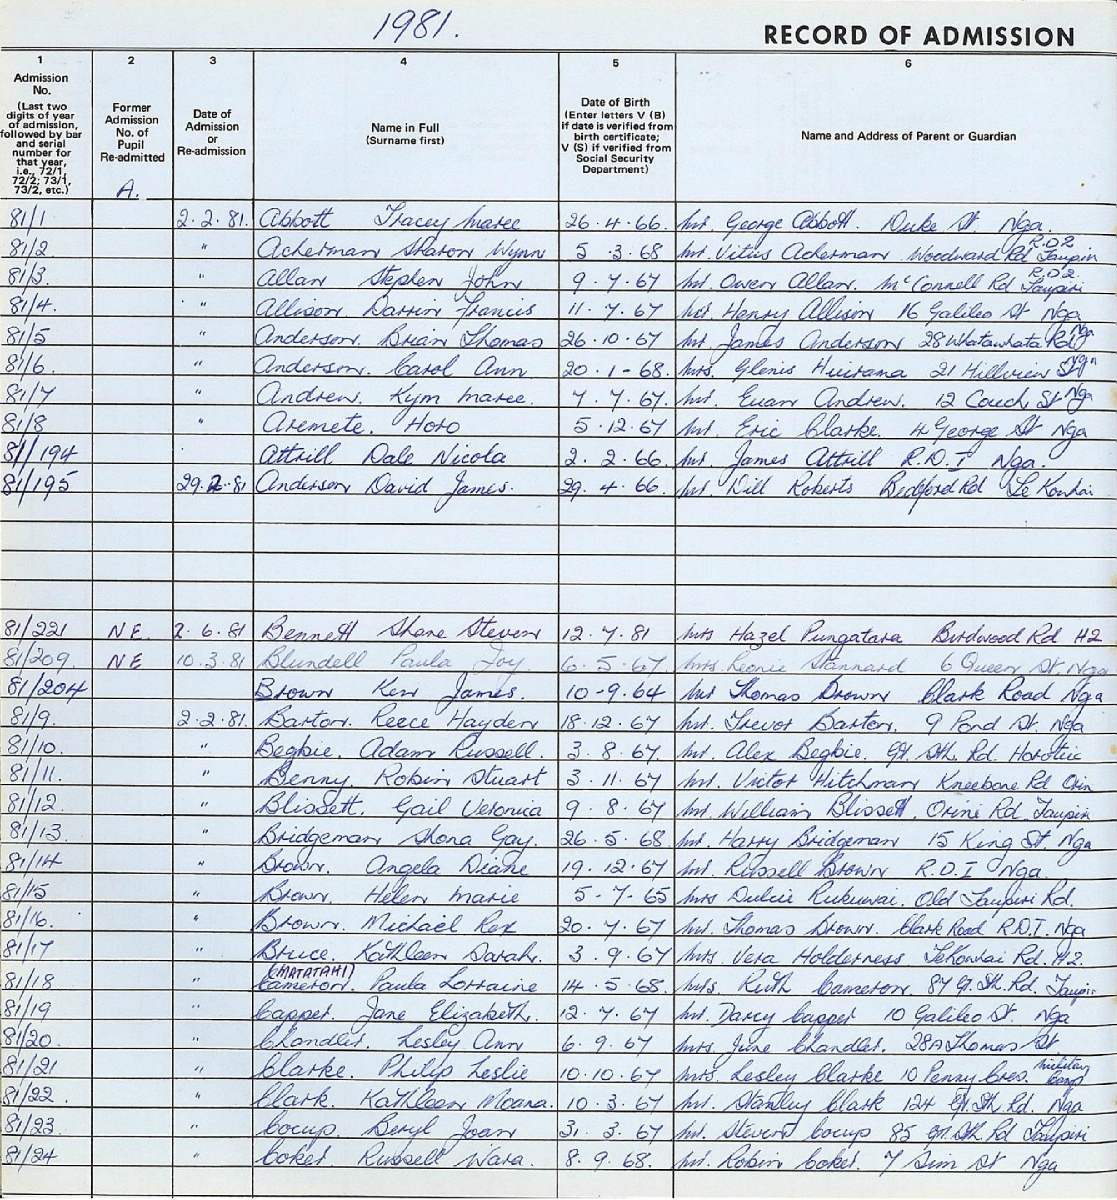 1981.
RECORD OF ADMISSION
1 2 3 4 5 6
Admission
No.
(Last two
digits of year
of admission,
followed by bar
and serial
number for
that year,
i.e., 72/1,
72/2; 73/1,
73/2, etc.)
Former
Admission
No. of
Pupil
Re-admitted
A.
Date of
Admission
or
Re-admission
Name in Full
(Surname first)
Date of Birth
(Enter letters V (B)
if date is verified from
birth certificate;
V (S) if verified from
Social Security
Department)
Name and Address of Parent or Guardian
81/1 2.2.81. Abbott Tracey Maree 26.4.66. Mr. George Abbott. Duke St. Nga.
81/2 " Ackerman Sharon Wynn 5 3.68 Mr. Vitus Ackerman Woodward Rd R.D.2 Taupiri
81/3 " Allan Stephen John 9.7.67 Mr. Owen Allan. McConnell Rd R.D.2. Taupiri
81/4 " Allison Darrin Francis 11.7.67 Mr. Henry Allison 16 Galileo St Nga
81/5 " Anderson. Brian Thomas 26.10.67 Mr James Anderson 28 Whatawhata Rd Nga
81/6 " Anderson. Carol Ann 20.1-68. Mrs. Glenis Huirama 21 Hillview Nga
81/7 " Andrew. Kym Maree. 7.7.67. Mr. Euan Andrew. 12 Couch St Nga
81/8 " Aremete. Horo 5.12.67 Mr. Eric Clarke. 4 George St Nga
81/194 Attrill Dale Nicola 2.2.66. Mr. James Attrill R.D.1 Nga.
81/195 29.2.81 Anderson David James. 29.4.66. Mr. Will Roberts Bedford Rd Te Kowhai
81/221 N.E. 2.6.81 Bennett Shane Steven 12.7.81 Mrs Hazel Pungatara Birdwood Rd H2
81/209. NE 10.3.81 Blundell Paula Joy 6.5.67 Mrs. Leonie Stannard 6 Queen St. Nga
81/204 Brown Ken James. 10-9.64 Mr Thomas Brown Clark Road Nga
81/9. 2.2.81. Barton. Reece Hayden 18.12.67 Mr. Trevor Barton. 9 Pond St. Nga
81/10. " Begbie. Adam Russell. 3.8.67. Mr. Alex Begbie. Gt. Sth. Rd. Horotiu
81/11. " Benny. Robin Stuart 3.11.67 Mr. Victor Hitchman Kneebone Rd Orin
81/12. " Blissett. Gail Veronica 9.8.67 Mr. William Blissett. Orini Rd. Taupiri
81/13. " Bridgeman Shona Gay. 26.5.68 Mr. Harry Bridgeman 15 King St. Nga
81/14 " Brown. Angela Diane 19.12.67 Mr. Russell Brown R.D.1 Nga.
81/15 " Brown. Helen Marie 5-7.65 Mrs Dulcie Rukuwai. Old Taupiri Rd.
81/16. " Brown. Michael Rex 20.7.67 Mr. Thomas Brown. Clark Road R.D.1. Nga
81/17 " Bruce. Kathleen Sarah. 3.9.67 Mrs. Vera Holderness TeKowhai Rd. H2.
81/18 " (MATATAHI) Cameron. Paula Lorraine 14.5.68. Mrs. Ruth Cameron. 87 Gt. Sth. Rd. Taupiri
81/19 " Capper. Jane Elizabeth. 12.7.67 Mr. Darcy Capper 10 Galileo St. Nga
81/20. " Chandler. Lesley Ann 6.9.67 Mrs. June Chandler. 28A Thomas St
81/21 " Clarke. Philip Leslie 10.10.67 Mrs. Lesley Clarke 10 Penny Cres. Military Camp
81/22. " Clark. Kathleen Moana. 10.3.67 Mr. Stanley Clark 124 Gt. Sth Rd. Nga
81/23 " Cocup. Beryl Joan 31.3.67 Mr. Steven Cocup 85 Gt. Sth Rd Taupiri
81/24 " Coker. Russell Wara. 8.9.68. Mr. Robin Coker. 7 Sim St Nga